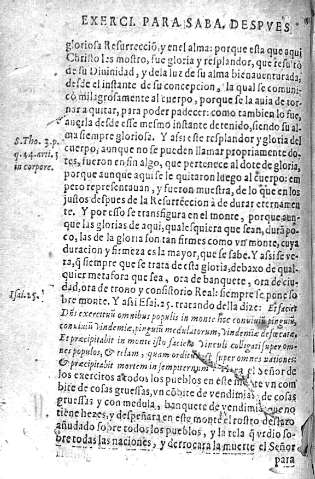 EXERCI. PARA SABA. DESPVES
gloriosa Resurrecciõ, y en el alma: porque esta que aqui
Christo les mostro, fue gloria y resplandor, que resultò
de su Diuinidad, y de la luz de su alma bienauenturada,
desde el instante de su concepcion, la qual se comuni-
cò milagrosamente al cuerpo, porque se la auia de tor-
nar a quitar, para poder padecer: como tambien lo fue,
auerla desde esse mesmo instante detenido, siendo su al-
ma siempre gloriosa. Y assi este resplandor y gloria del
S. Tho. 3. p.
q. 44. arti. 3
in corpore.
cuerpo, aunque no se pueden llamar propriamente do-
tes, fueron en fin algo, que pertenece al dote de gloria,
porque aunque aqui se le quitaron luego al cuerpo: em
pero representauan, y fueron muestra, de lo que en los
justos despues de la Resurreccion à de durar eternamen
te. Y por esso se transfigura en el monte, porque aun-
que las glorias de aqui, qualesquiera que sean, durã po-
co, las de la gloria son tan firmes como vn monte, cuya
duracion y firmeza es la mayor, que se sabe. Y assi se ve-
ra, q̃ siempre que se trata de esta gloria, debaxo de qual-
quier metafora que sea, ora de banquete, ora de ciu-
dad, ora de trono y consistorio Real: siempre se pone so
Isai. 25.
bre monte. Y assi Esai. 25. tratando della dize: Et faciet
Dñs exercituũ omnibus populis in monte hoc conuiuiũ pinguiũ,
conuiuiũ vindemiæ, pinguiũ medullatorum, vindemiæ defæcatæ.
Et præcipitabit in monte isto faciem vinculi colligati super om-
nes populos, & telam, quam orditus est super omnes nationes:
& præcipitabit mortem in sempiternum. Hara el Señor de
los exercitos a todos los pueblos en este monte vn com
bite de cosas gruessas, vn cõbite de vendimias, de cosas
gruessas y con medula, banquete de vendimia que no
tiene hezes, y despeñara en este monte el rostro del lazo
añudado sobre todos los pueblos, y la tela q̃ vrdio so-
bre todas las naciones, y derrocara la muerte el Señor
para